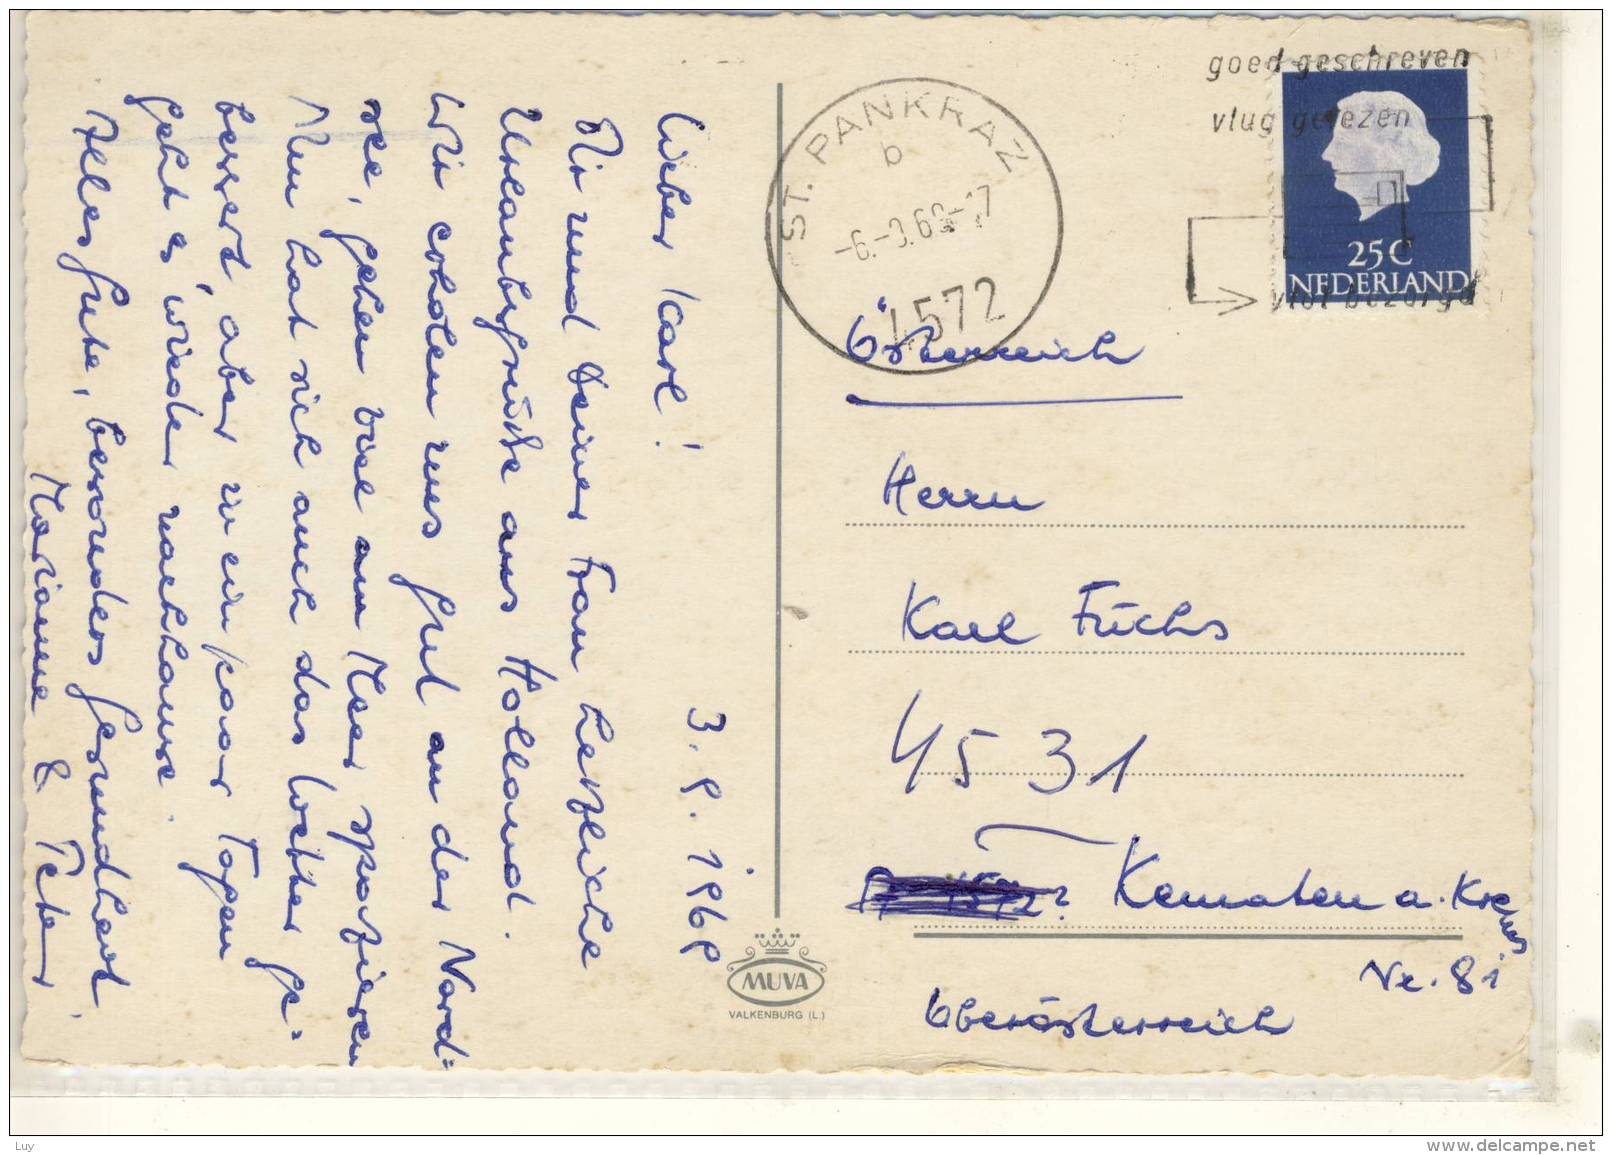 3. 9. 1969
Lieber Karl!
Dir und Deiner Frau herzliche
Urlaubsgrüße aus Holland.
Wir erholen uns gut an der Nord=
see, gehen viel am Meer spazieren
Nun hat sich auch das Wetter ge=
bessert, aber in ein paar Tagen
geht es wieder nachhause.
Alles Gute, besonders Gesundheit,
Marianne & Peter
MUVA
VALKENBURG (L.)
goed geschreven
vlug gelezen
vlot bezorgd
25 C
NEDERLAND
ST. PANKRAZ
b
4572
Österreich
Herrn
Karl Fuchs
4531
Kematen a. Krems
Nr. 81
Oberösterreich
Luy
www.delcampe.net